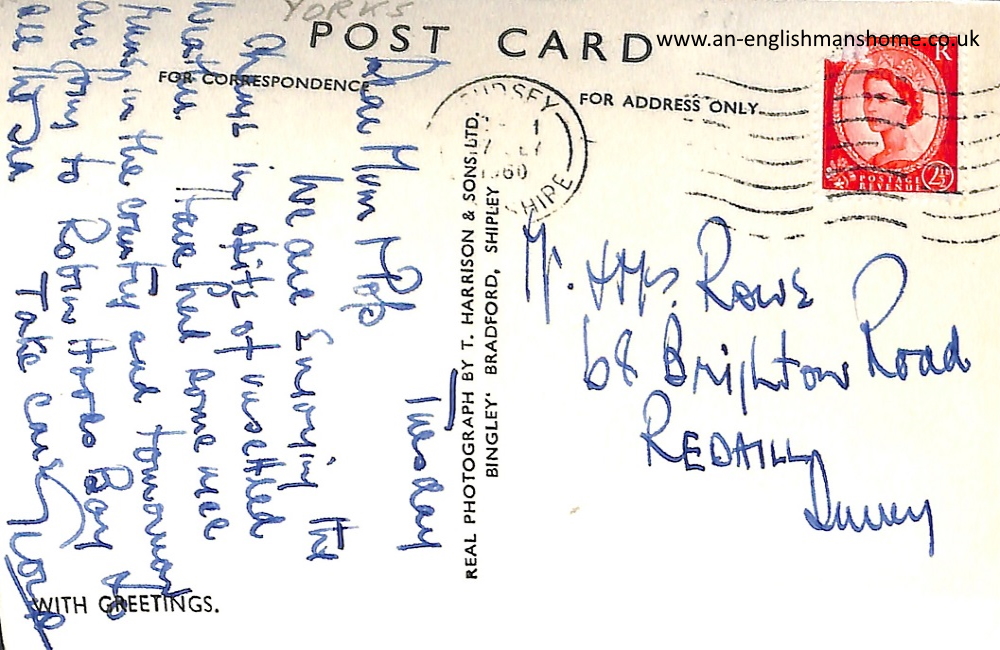 YORKS
POST CARD
www.an-englishmanshome.co.uk
FOR CORRESPONDENCE
FOR ADDRESS ONLY
Tuesday
Dear Mum & Pop
We are Enjoying the
change in spite of unsettled
weather. Have had some nice
runs in the country and tomorrow
are going to Robin Hoods Bay to
see the sea
Take care
Love
WITH GREETINGS.
REAL PHOTOGRAPH BY T. HARRISON & SONS, LTD.
BINGLEY' BRADFORD, SHIPLEY
1960
R
POSTAGE
REVENUE
2½D
Mr. & Mrs. Rowe
68 Brighton Road
REDHILL
Surrey